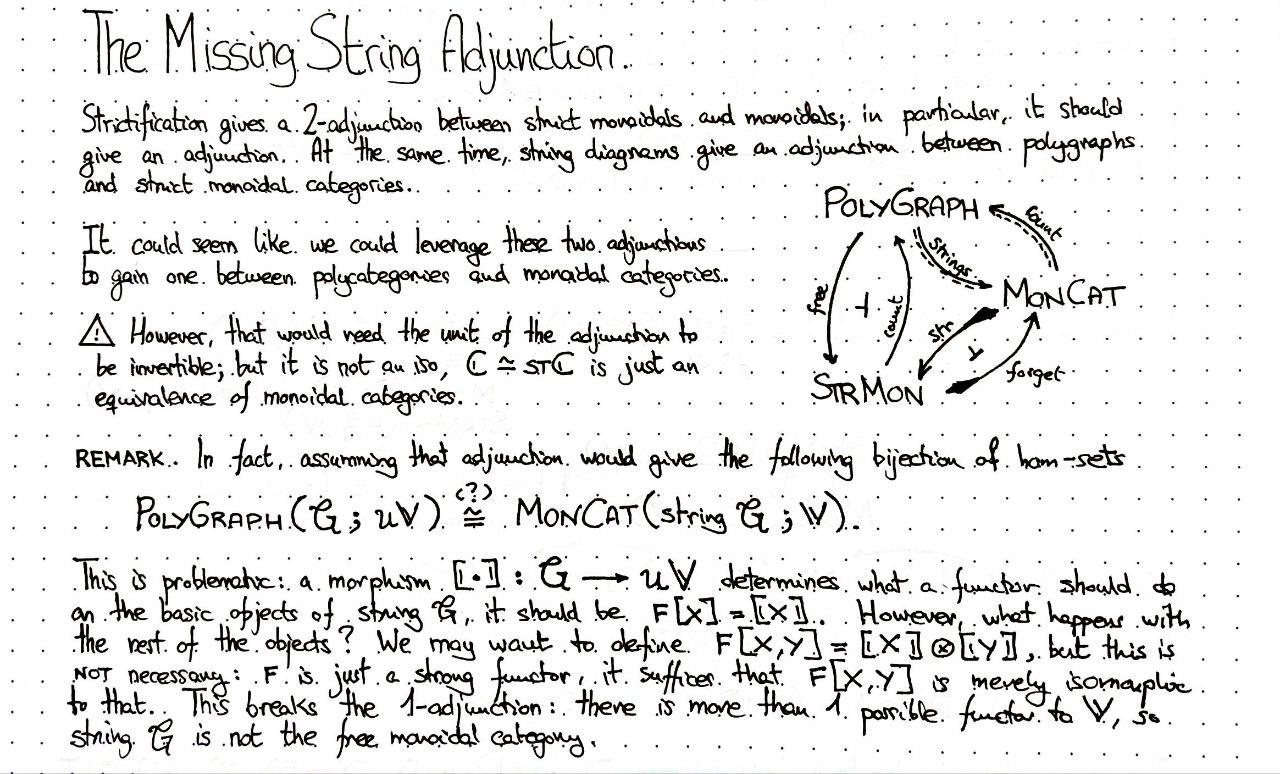 The Missing String Adjunction.
Strictification gives a 2-adjunction between strict monoidals and monoidals; in particular, it should
give an adjunction. At the same time, string diagrams give an adjunction between polygraphs
and strict monoidal categories.
POLYGRAPH
count
It could seem like we could leverage these two adjunctions
to gain one between polycategories and monoidal categories.
strings
MONCAT
free
⊣
count
str
⊣
forget
STRMON
⚠ However, that would need the unit of the adjunction to
be invertible; but it is not an iso, ℂ ≅ STℂ is just an
equivalence of monoidal categories.
REMARK. In fact, assumming that adjunction would give the following bijection of hom-sets
POLYGRAPH(G; uV) (?)≅ MONCAT(string G; V).
This is problematic: a morphism [[•]] : G → uV determines what a functor should do
on the basic objects of string G, it should be F[X] = [[X]]. However, what happens with
the rest of the objects? We may want to define F[X,Y] = [[X]] ⊗ [[Y]], but this is
NOT necessary: F is just a strong functor, it suffices that F[X,Y] is merely isomorphic
to that. This breaks the 1-adjunction: there is more than 1 possible functor to V, so
string G is not the free monoidal category.